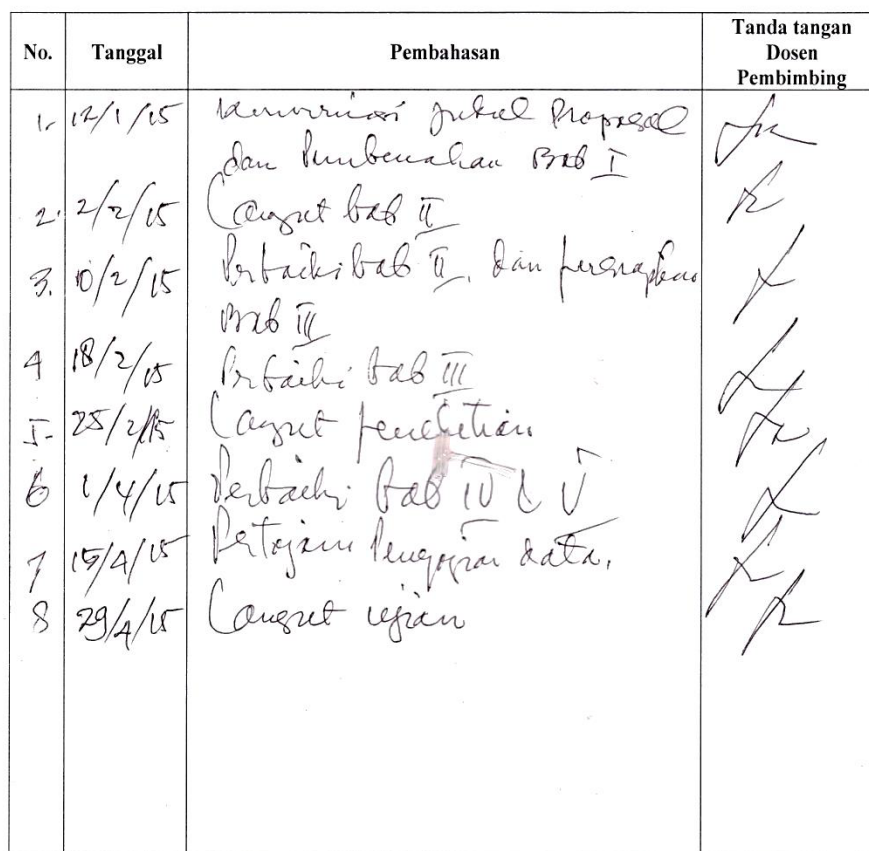 No. Tanggal Pembahasan Tanda tangan
Dosen
Pembimbing
1. 12/1/15 Judul Proposal
dan Pembenahan Bab I
2. 2/2/15 Lanjut bab II
3. 10/2/15 Perbaiki bab II, dan persiapkan
Bab III
4 18/2/15 Perbaiki bab III
5. 25/2/15 Lanjut penelitian
6 1/4/15 Perbaiki bab IV & V
7 15/4/15 Pertajam Pengujian data.
8 29/4/15 Lanjut ujian